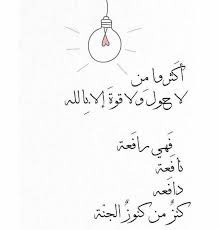 أكثروا من
لا حول ولا قوة إلا بالله
فهي رافعة
نافعة
دافعه
كنز من كنوز الجنة